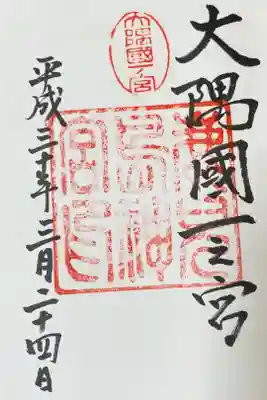 大隅國一之宮
大隅國一宮
平成三十年三月二十四日